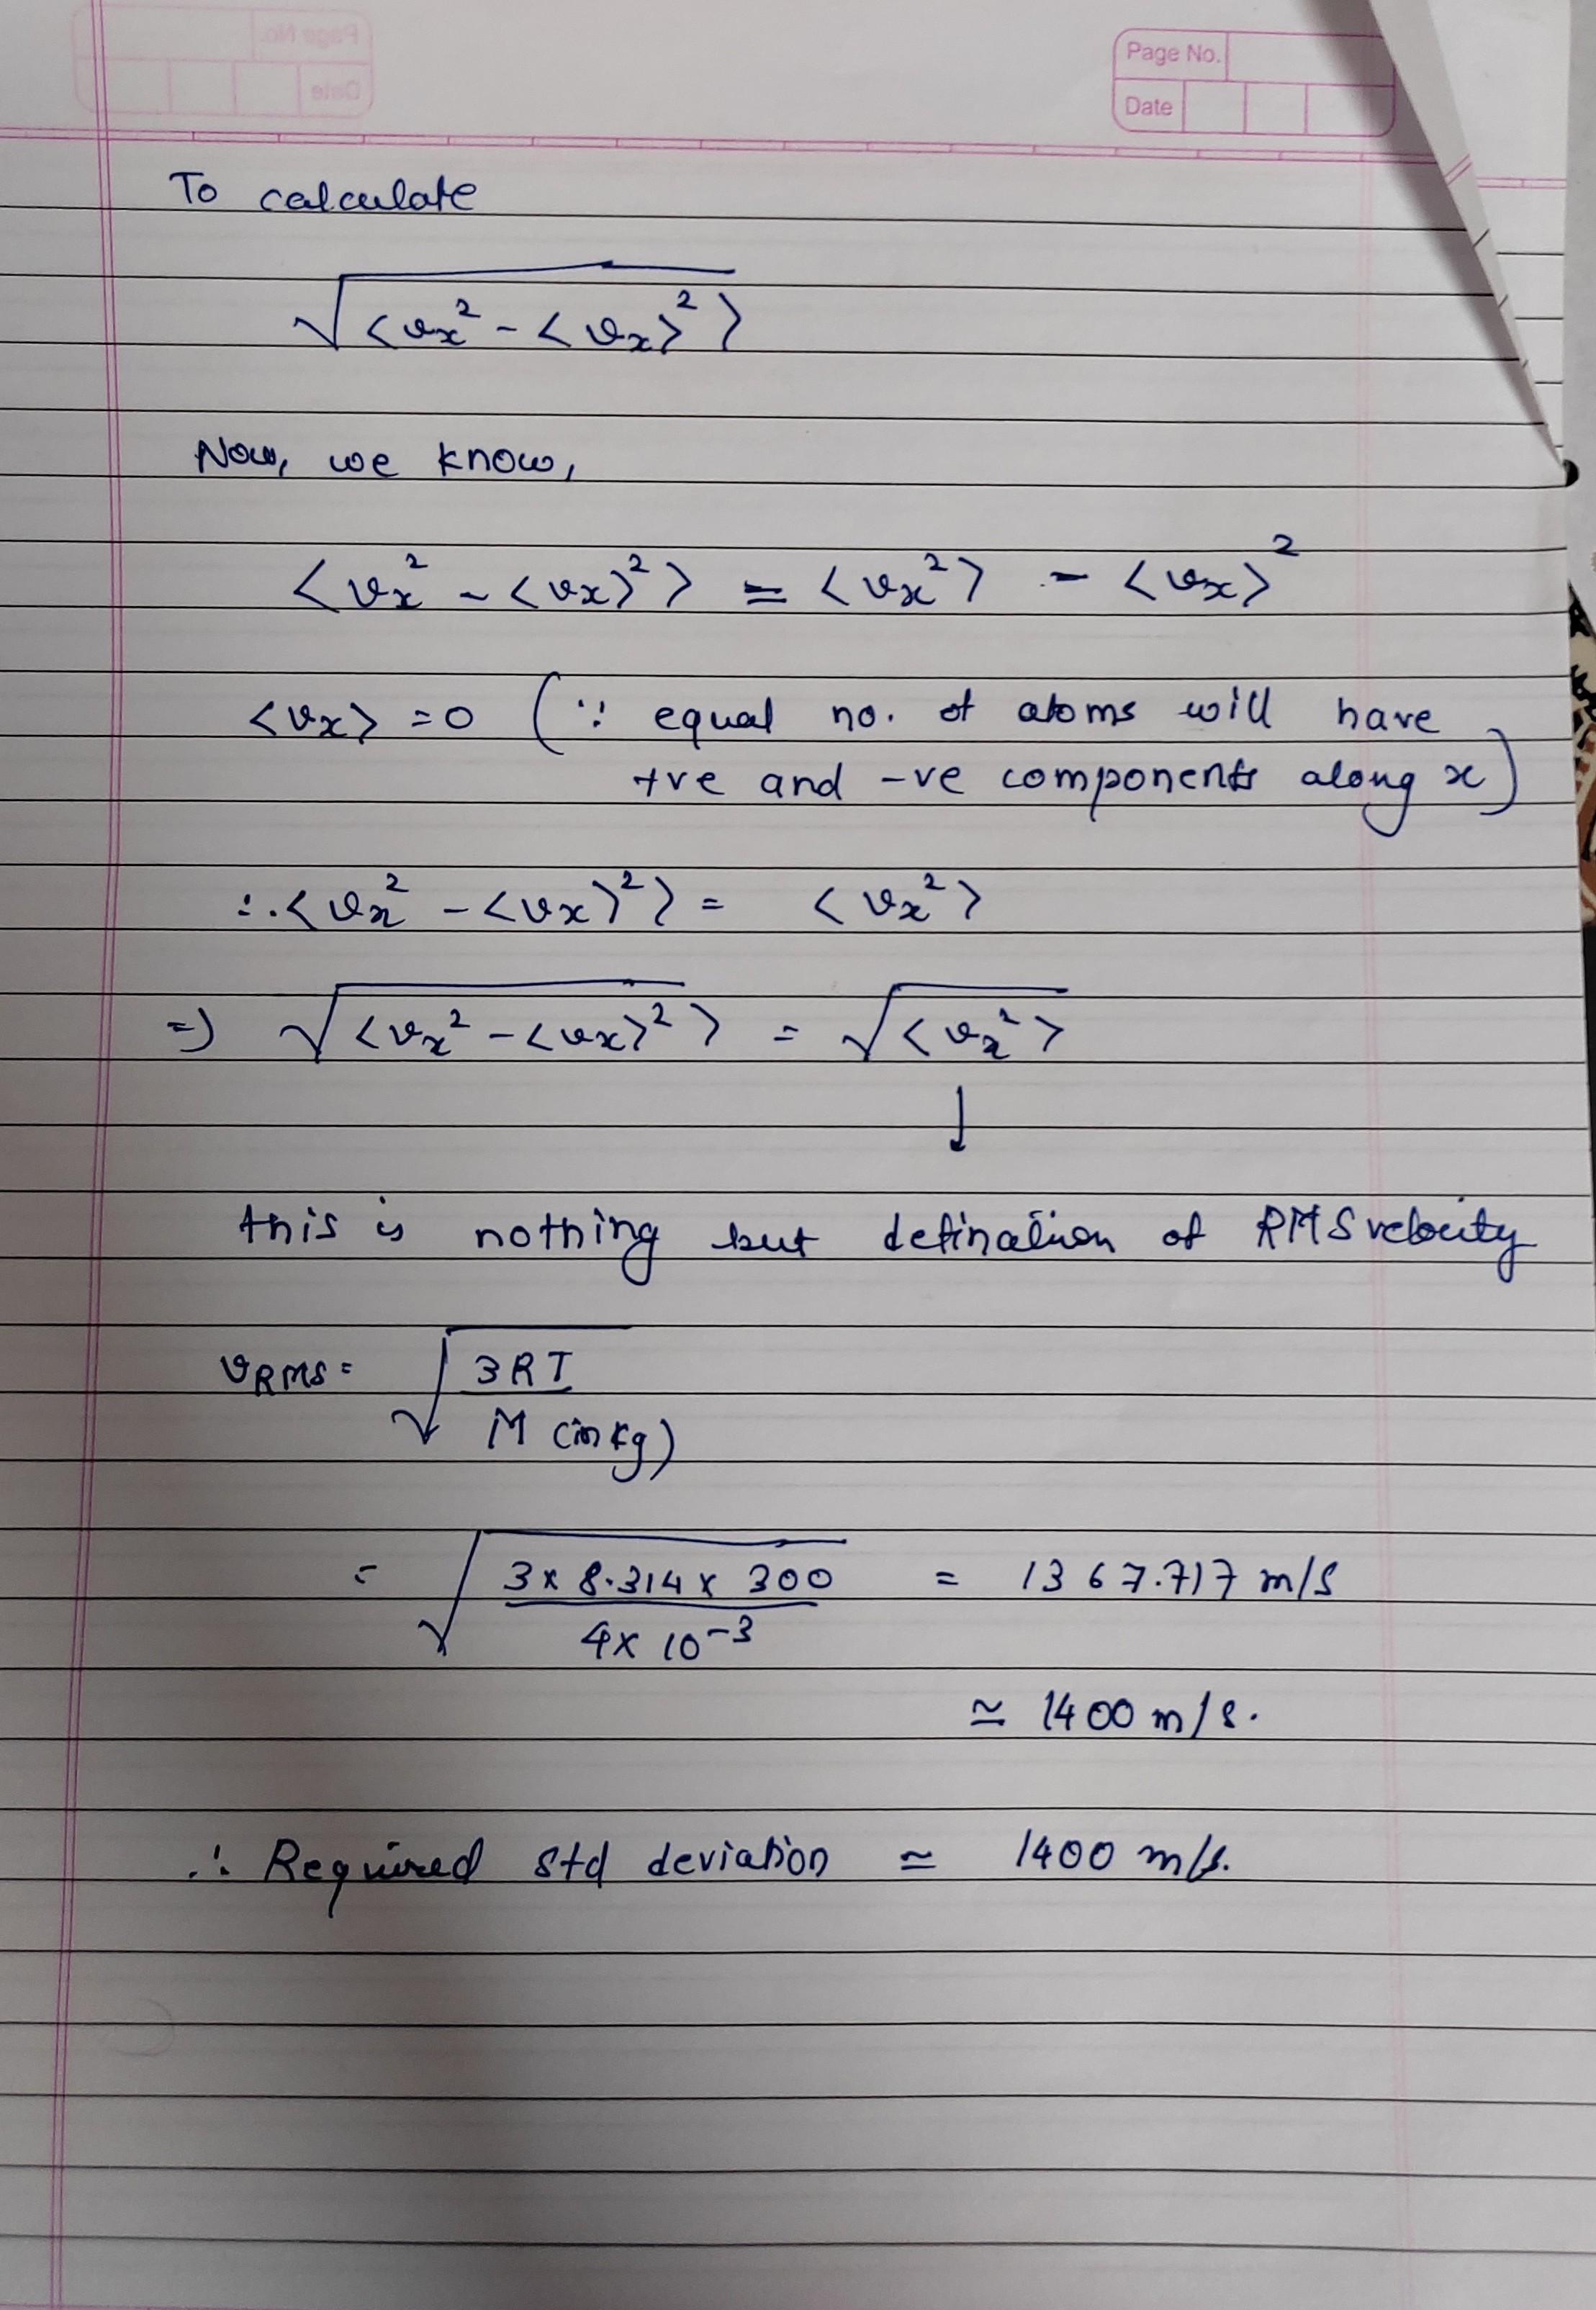 Page No.
Date
To calculate
√⟨vx² - ⟨vx⟩²⟩
Now, we know,
⟨vx² - ⟨vx⟩²⟩ = ⟨vx²⟩ - ⟨vx⟩²
⟨vx⟩ = 0 (∵ equal no. of atoms will have
+ve and -ve components along x)
∴ ⟨vx² - ⟨vx⟩²⟩ = ⟨vx²⟩
=) √⟨vx² - ⟨vx⟩²⟩ = √⟨vx²⟩
↓
this is nothing but defination of RMS velocity
vRMS = √3RT
M (in kg)
= √3 x 8.314 x 300 = 1367.717 m/s
4 x 10⁻³
≃ 1400 m/s.
∴ Required std deviation ≃ 1400 m/s.